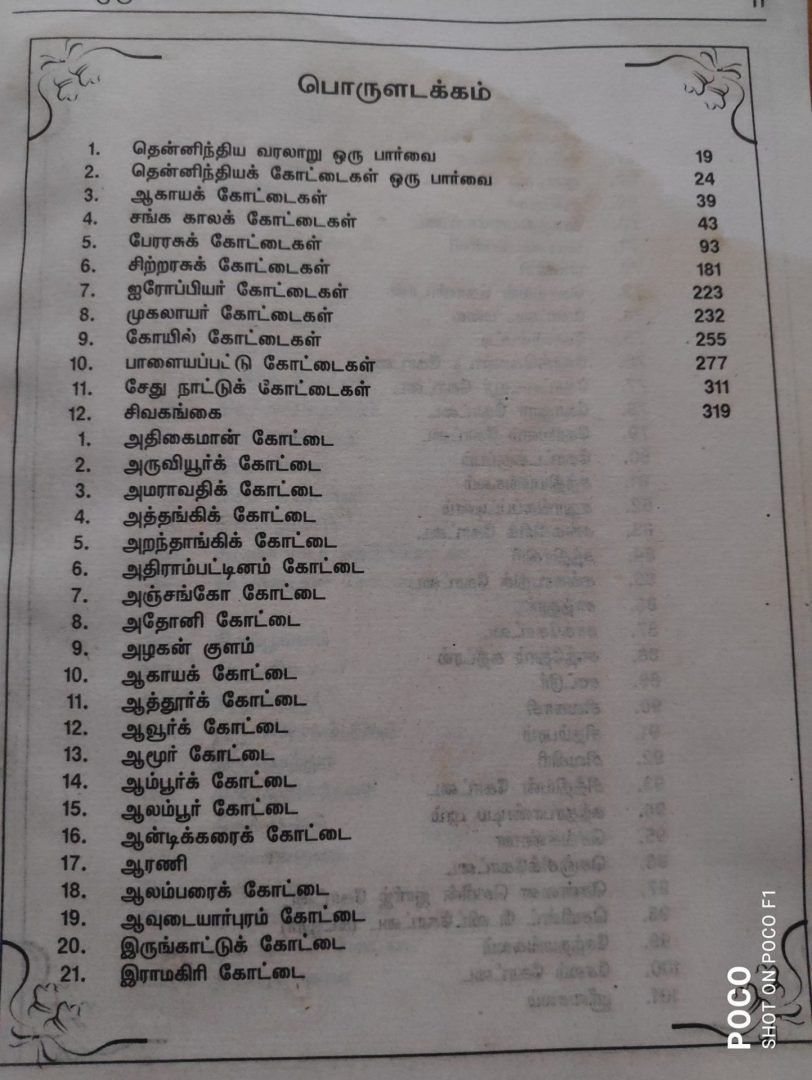 11
பொருளடக்கம்
1. தென்னிந்திய வரலாறு ஒரு பார்வை 19
2. தென்னிந்தியக் கோட்டைகள் ஒரு பார்வை 24
3. ஆகாயக் கோட்டைகள் 39
4. சங்க காலக் கோட்டைகள் 43
5. பேரரசுக் கோட்டைகள் 93
6. சிற்றரசுக் கோட்டைகள் 181
7. ஐரோப்பியர் கோட்டைகள் 223
8. முகலாயர் கோட்டைகள் 232
9. கோயில் கோட்டைகள் 255
10. பாளையப்பட்டு கோட்டைகள் 277
11. சேது நாட்டுக் கோட்டைகள் 311
12. சிவகங்கை 319
1. அதிகைமான் கோட்டை
2. அருவியூர்க் கோட்டை
3. அமராவதிக் கோட்டை
4. அத்தங்கிக் கோட்டை
5. அறந்தாங்கிக் கோட்டை
6. அதிராம்பட்டினம் கோட்டை
7. அஞ்சங்கோ கோட்டை
8. அதோனி கோட்டை
9. அழகன் குளம்
10. ஆகாயக் கோட்டை
11. ஆத்தூர்க் கோட்டை
12. ஆவூர்க் கோட்டை
13. ஆமூர் கோட்டை
14. ஆம்பூர்க் கோட்டை
15. ஆலம்பூர் கோட்டை
16. ஆண்டிக்கரைக் கோட்டை
17. ஆரணி
18. ஆலம்பரைக் கோட்டை
19. ஆவுடையார்புரம் கோட்டை
20. இருங்காட்டுக் கோட்டை
21. இராமகிரி கோட்டை
POCO
SHOT ON POCO F1